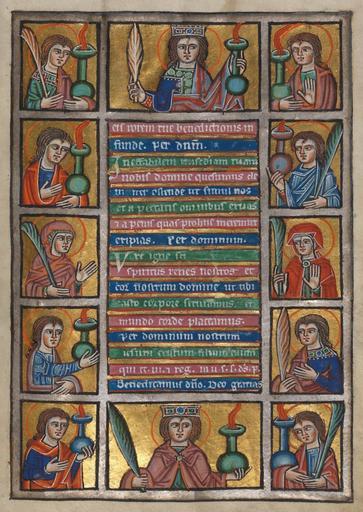 eis rorem tue benedictionis in
funde. Per dnm.
Ineffabilem misericordiam tuam
nobis domine quesumus cle
nter ostende ut simul nos
et a peccatis omnibus exuas
et a penis quas pro his meremur
eripias. Per dominum.
Ure igne sci
spiritus renes nostros et
cor nostrum domine ut tibi
casto corpore seruiamus. et
mundo corde placeamus.
Per dominum nostrum
ihesum cristum filium tuum
qui te. ui. et reg. in u. s. s. ds. p.
Benedicamus dno. Deo gratias